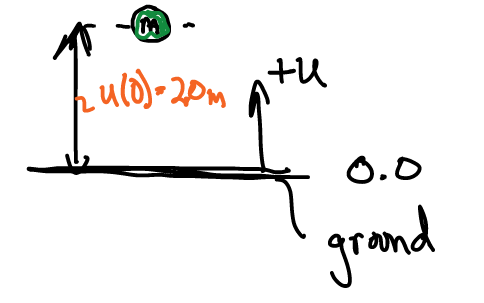 m
+u
u(0)=2.0m
0.0
ground